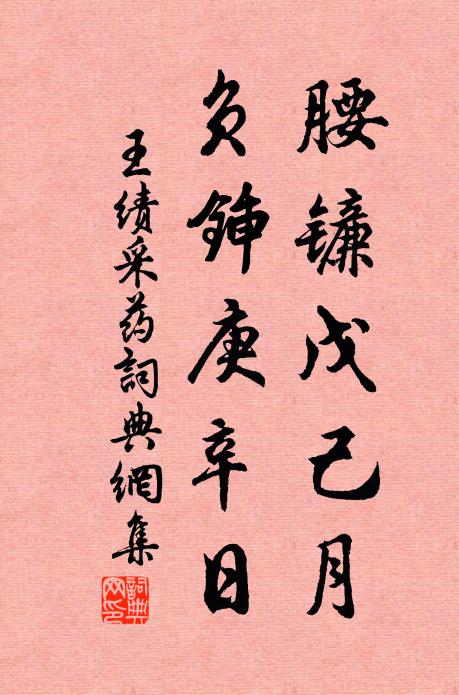 腰镰戊己月
负鍤庚辛日
王绩采药詞典網集
詞典
网印